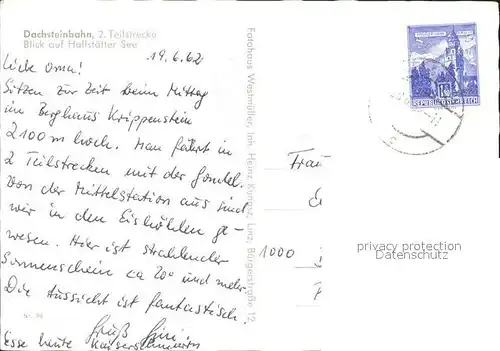 Dachsteinbahn, 2. Teilstrecke
Blick auf Hallstätter See
19.6.62
Liebe Oma!
Sitzen zur Zeit beim Mittag
im Berghaus Krippenstein
2100 m hoch. Man fährt in
2 Teilstrecken mit der Gondel.
Von der Mittelstation aus sind
wir in den Eishöhlen ge-
wesen. Hier ist strahlender
Sonnenschein ca 20° und mehr.
Die Aussicht ist fantastisch.
Gruß
Esse heute Kaiserschmarrn
Fotohaus Westmüller, Inh. Heinz Linz, Bürgerstraße 12
REPUBLIK ÖSTERREICH
Frau
1000
privacy protection
Datenschutz